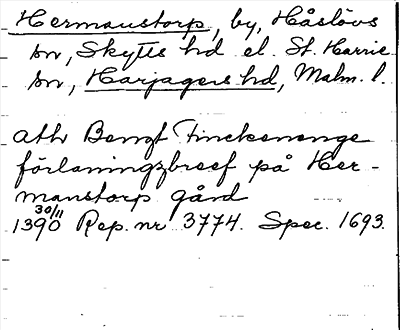 Hermanstorp, by, Håslövs
sn, Skytts hd el. St. Harrie
sn, Harjagers hd, Malm. l.
ath Bengt Finckenonge
förlaningzbreef på Her-
manstorp gård
1390 30/11 Rep. nr 3774. Spec. 1693.